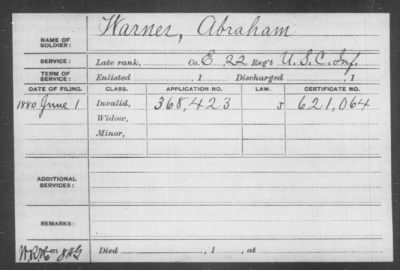 NAME OF SOLDIER: Warner, Abraham
SERVICE: Late rank, Co. E 22 Reg't U. S. C. Inf.
TERM OF SERVICE: Enlisted , 1 Discharged , 1
DATE OF FILING. CLASS. APPLICATION NO. LAW. CERTIFICATE NO.
1880 June 1 Invalid, 368,423 621,064
Widow,
Minor,
ADDITIONAL SERVICES:
REMARKS:
Died , 1 , at